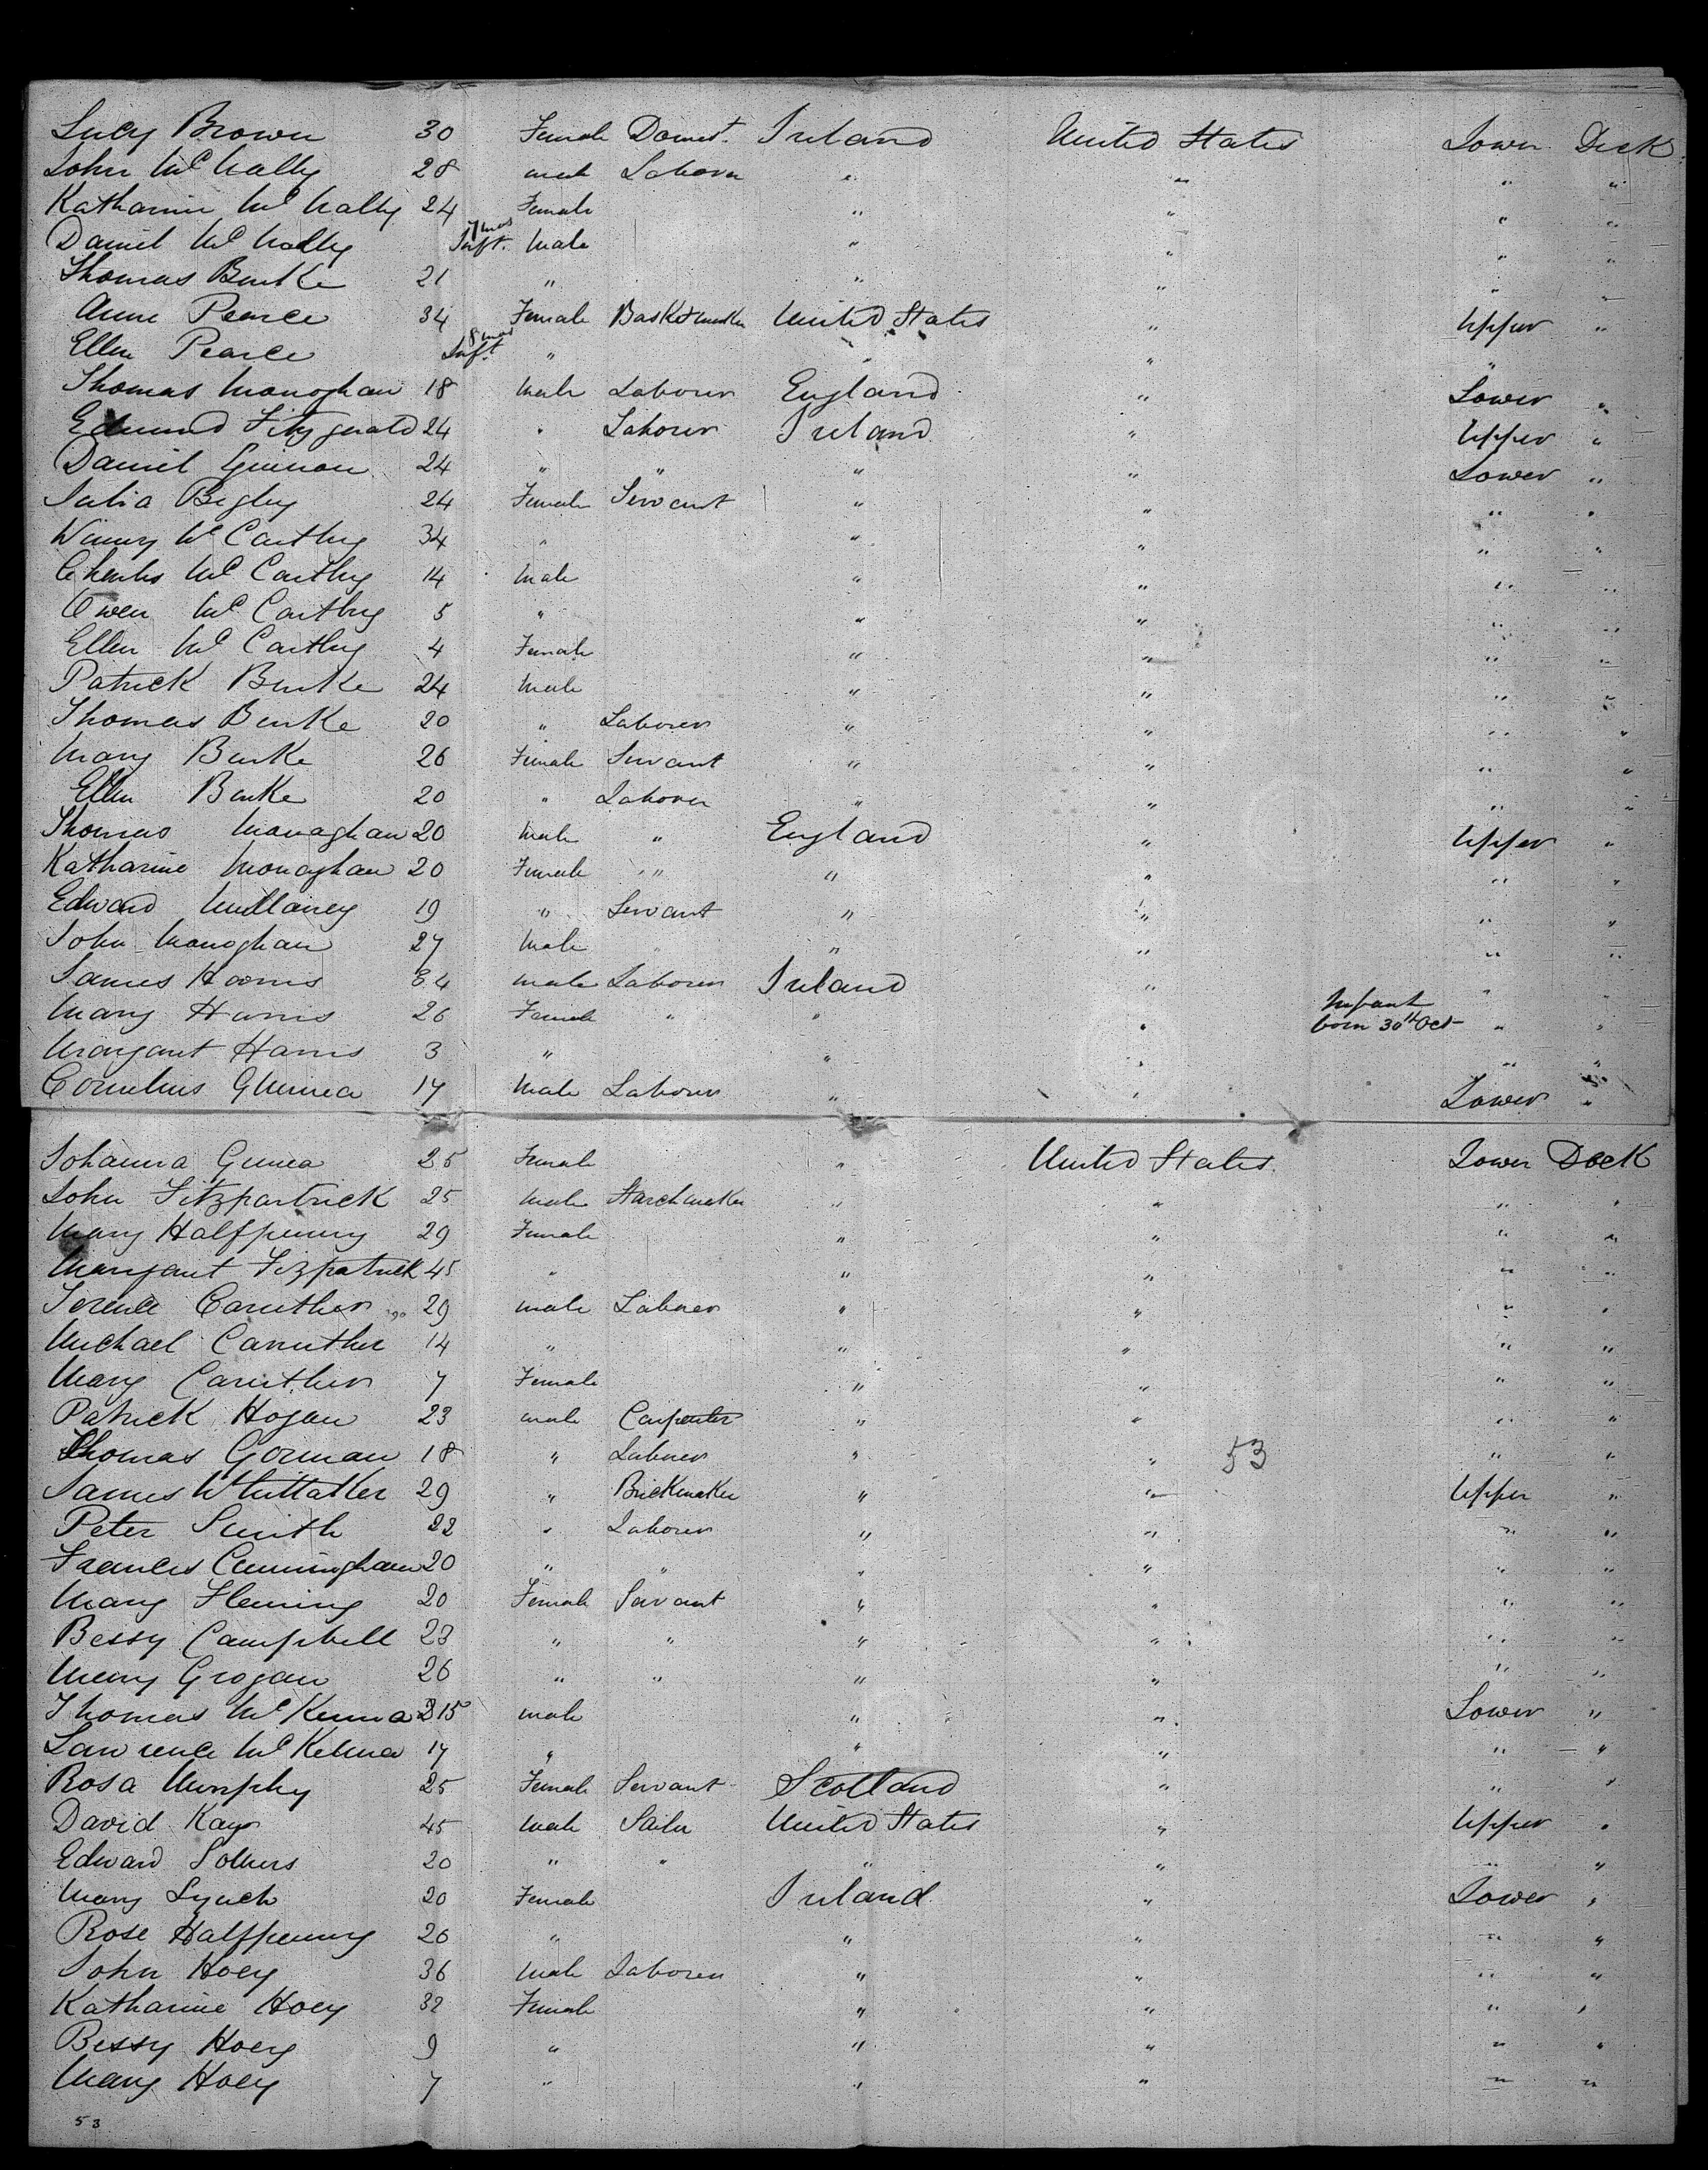 Lucy Brown 30 Female Domest. Ireland United States Lower Deck
John McNally 28 male Laborer " " " "
Katharine McNally 24 Female " " " "
Daniel McNally 7 mos Inft. Male " " " "
Thomas Burke 21 " " " " "
Anne Pearce 34 Female Basketmaker United States " Upper "
Ellen Pearce 8 mos Inft " " " "
Thomas Monoghan 18 Male Laborer England " Lower "
Edmund Fitzgerald 24 " Laborer Ireland " Upper "
Daniel Guinon 24 " " " " Lower "
Julia Begley 24 Female Servant " " " "
Winny McCarthy 34 " " " " "
Charles McCarthy 14 Male " " " "
Owen McCarthy 5 " " " " "
Ellen McCarthy 4 Female " " " "
Patrick Burke 24 Male " " " "
Thomas Burke 20 " Laborer " " " "
Mary Burke 26 Female Servant " " " "
Ellen Burke 20 " Laborer " " " "
Thomas Monaghan 20 Male " England " Upper "
Katharine Monaghan 20 Female " " " " "
Edward Mullaney 19 " Servant " " " "
John Monoghan 27 Male " " " " "
James Harris 34 male Laborer Ireland " " "
Mary Harris 26 Female " " " Infant born 30th Oct " "
Margaret Harris 3 " " " " "
Cornelius Guinea 17 Male Laborer " " Lower "
Johanna Guinea 25 Female " United States Lower Deck
John Fitzpartrick 25 Male Starchmaker " " " "
Mary Halfpenny 29 Female " " " "
Margaret Fizpatrick 45 " " " " "
Terence Caruthers 29 male Laborer " " " "
Michael Carruther 14 " " " " "
Mary Caruthers 7 Female " " " "
Patrick Hogan 23 male Carpenter " " " "
Thomas Gorman 18 " Laborer " " 53 " "
James Whittatker 29 " Brickmaker " " Upper "
Peter Smith 22 " Laborer " " " "
Frances Cunningham 20 " " " " " "
Mary Fleming 20 Female Servant " " " "
Bessy Campbell 23 " " " " " "
Mary Grogan 26 " " " " " "
Thomas McKenna 15 male " " Lower "
Lawrence McKenna 17 " " " " "
Rosa Murphy 25 Female Servant Scotland " " "
David Kays 45 male Sailor United States " Upper "
Edward 20 " " " " " "
Mary Lynch 20 Female Ireland " Lower "
Rose Halfpenny 26 " " " " "
John Hoey 36 Male Laborer " " " "
Katharine Hoey 32 Female " " " "
Bessy Hoey 9 " " " " "
Mary Hoey 7 " " " " "
53